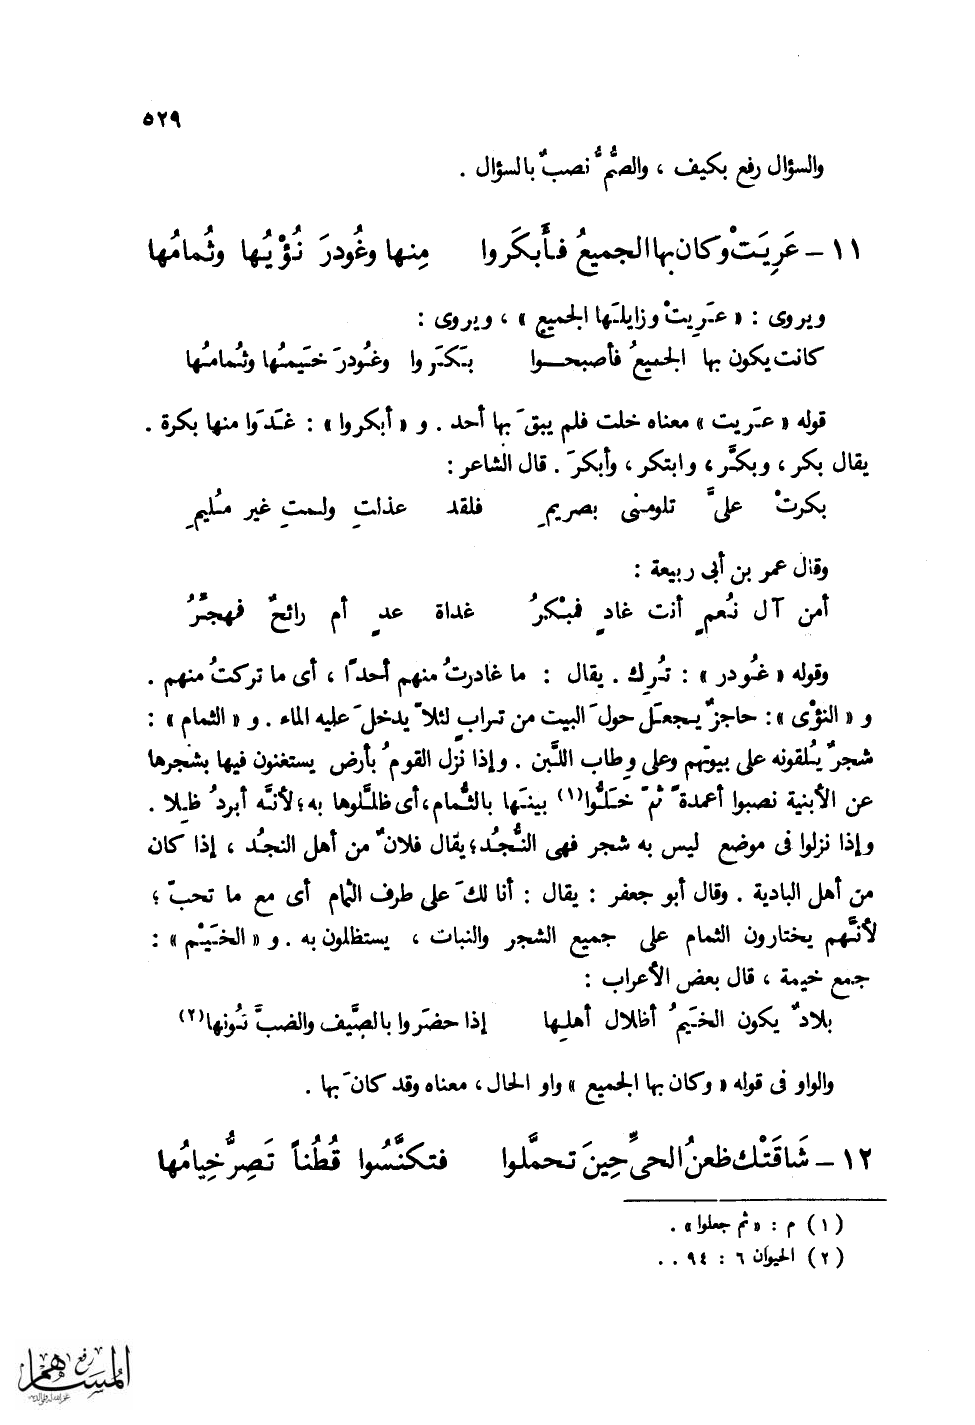 ٥٢٩
والسؤال رفع بكيف ، والصُّمُّ نصبٌ بالسؤال .
١١ – عَرِيَتْ وكان بها الجميعُ فأَبكَروا منها وغُودرَ نُؤْيُها وثُمامُها
ويروى : « عَرِيتْ وزايلَها الجميع » ، ويروى :
كانت يكون بها الجميعُ فأصبحوا بَكَروا وغُودرَ خَيمُها وثُمامُها
قوله « عَرِيت » معناه خلت فلم يبقَ بها أحد . و « أبكروا » : غَدَوا منها بكرة .
يقال بكر ، وبكَّر ، وابتكر ، وأبكرَ . قال الشاعر :
بكرتْ علىَّ تلومنى بصريمِ فلقد عذلتِ ولمتِ غير مُليمِ
وقال عمر بن أبى ربيعة :
أمن آل نُعمٍ أنت غادٍ فمبْكرُ غداة غدٍ أم رائحٌ فمهجِّرُ
وقوله « غُودر » : تُرِك . يقال : ما غادرتُ منهم أحدًا ، أى ما تركتُ منهم .
و « النؤْى » : حاجزٌ يجعل حولَ البيت من ترابٍ لئلاّ يدخلَ عليه الماء . و « الثمام » :
شجرٌ يُلقونه على بيوتهم وعلى وِطاب اللَّبن . وإذا نزل القومُ بأرض يستغنون فيها بشجرها
عن الأبنية نصبوا أعمدةً ثمّ خَلُّوا(١) بينَها بالثُّمام، أى ظلَّلوها به؛ لأنَّه أبردُ ظِلا .
وإذا نزلوا فى موضع ليس به شجر فهى النُّجُد؛ يقال فلانٌ من أهل النجُد ، إذا كان
من أهل البادية . وقال أبو جعفر : يقال : أنا لكَ على طرف الثمام أى مع ما تحبّ ؛
لأنَّهم يختارون الثمام على جميع الشجر والنبات ، يستظلون به . و « الخَيْم » :
جمع خيمة ، قال بعض الأعراب :
بلادٌ يكون الخَيمُ أظلال أهلها إذا حضَروا بالصَّيف والضبَّ نُونها(٢)
والواو فى قوله « وكان بها الجميع » واو الحال ، معناه وقد كانَ بها .
١٢ – شَاقَتْك ظعنُ الحىِّ حِينَ تحمَّلوا فتكنَّسُوا قُطُناً تَصِرُّ خِيامُها
(١) م : « ثم جعلوا » .
(٢) الحيوان ٦ : ٩٤ . .
رفع
المساهم